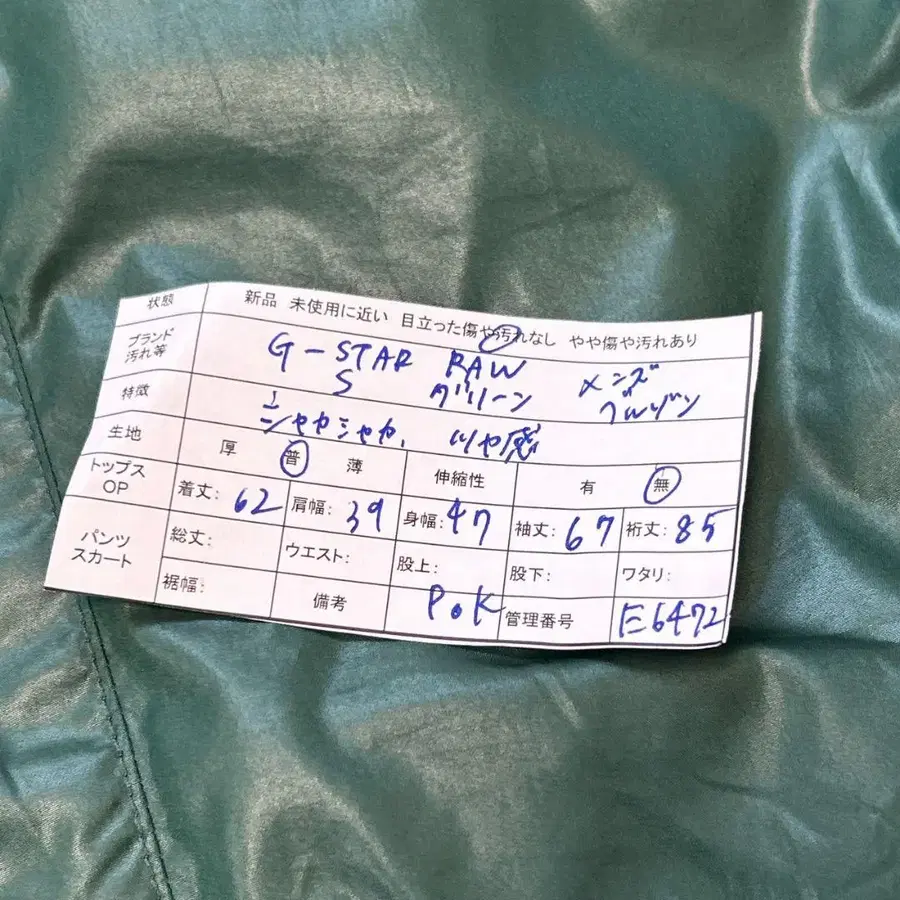 状態 新品 未使用に近い 目立った傷や汚れなし やや傷や汚れあり
ブランド 汚れ等 G-STAR RAW メンズ
S グリーン ブルゾン
特徴 シャカシャカ、ツヤ感
生地 厚 普 薄 伸縮性 有 無
トップス OP 着丈:62 肩幅:39 身幅:47 袖丈:67 裄丈:85
パンツ スカート 総丈: ウエスト: 股上: 股下: ワタリ:
裾幅: 備考 P.K 管理番号 E6472